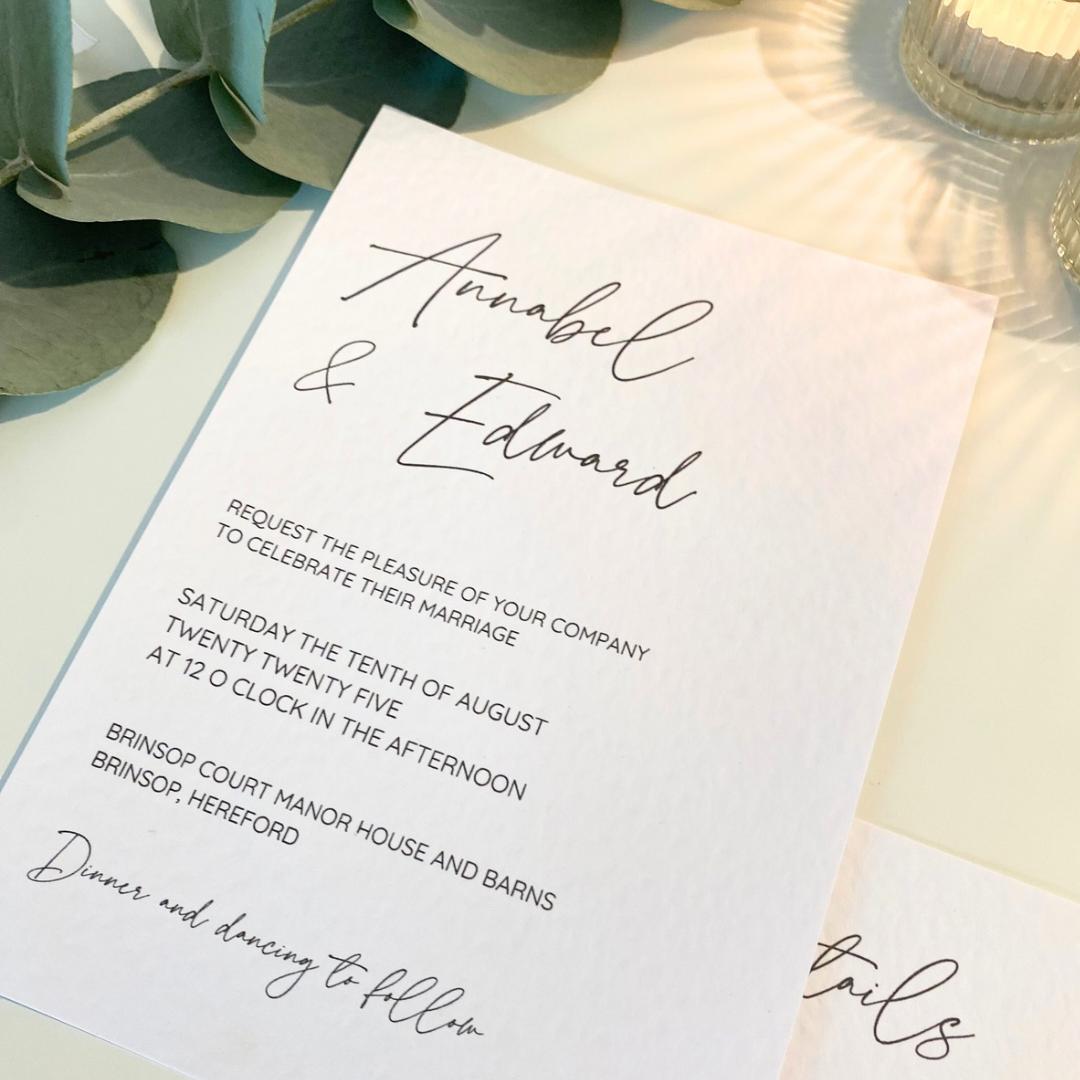 Annabel
& Edward
REQUEST THE PLEASURE OF YOUR COMPANY
TO CELEBRATE THEIR MARRIAGE
SATURDAY THE TENTH OF AUGUST
TWENTY TWENTY FIVE
AT 12 O CLOCK IN THE AFTERNOON
BRINSOP COURT MANOR HOUSE AND BARNS
BRINSOP, HEREFORD
Dinner and dancing to follow
tails